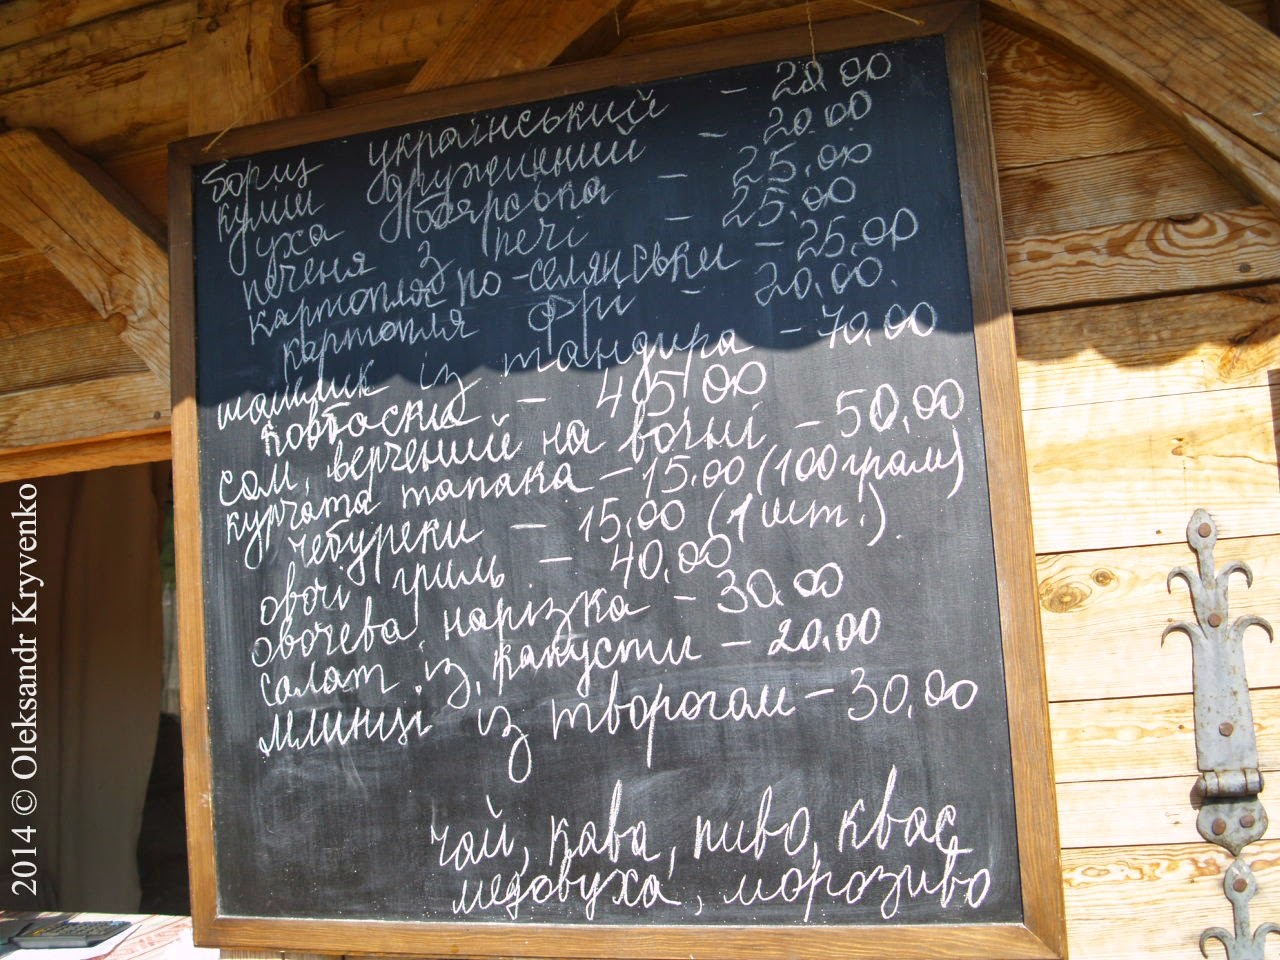 борщ український - 20.00
куліш дружинний - 20.00
уха боярська - 25.00
печеня з печі - 25.00
картопля по-селянськи - 25.00
картопля фрі - 20.00.
шашлик із тандира - 70.00
ковбаски - 45.00
сом, верчений на вогні - 50.00
курчата тапака - 15.00 (100 грам)
чебуреки - 15.00 (1 шт.).
овочі гриль - 40.00
овочева нарізка - 30.00
салат із капусти - 20.00
млинці із творогом - 30.00
чай, кава, пиво, квас
медовуха, морозиво
2014 © Oleksandr Kryvenko